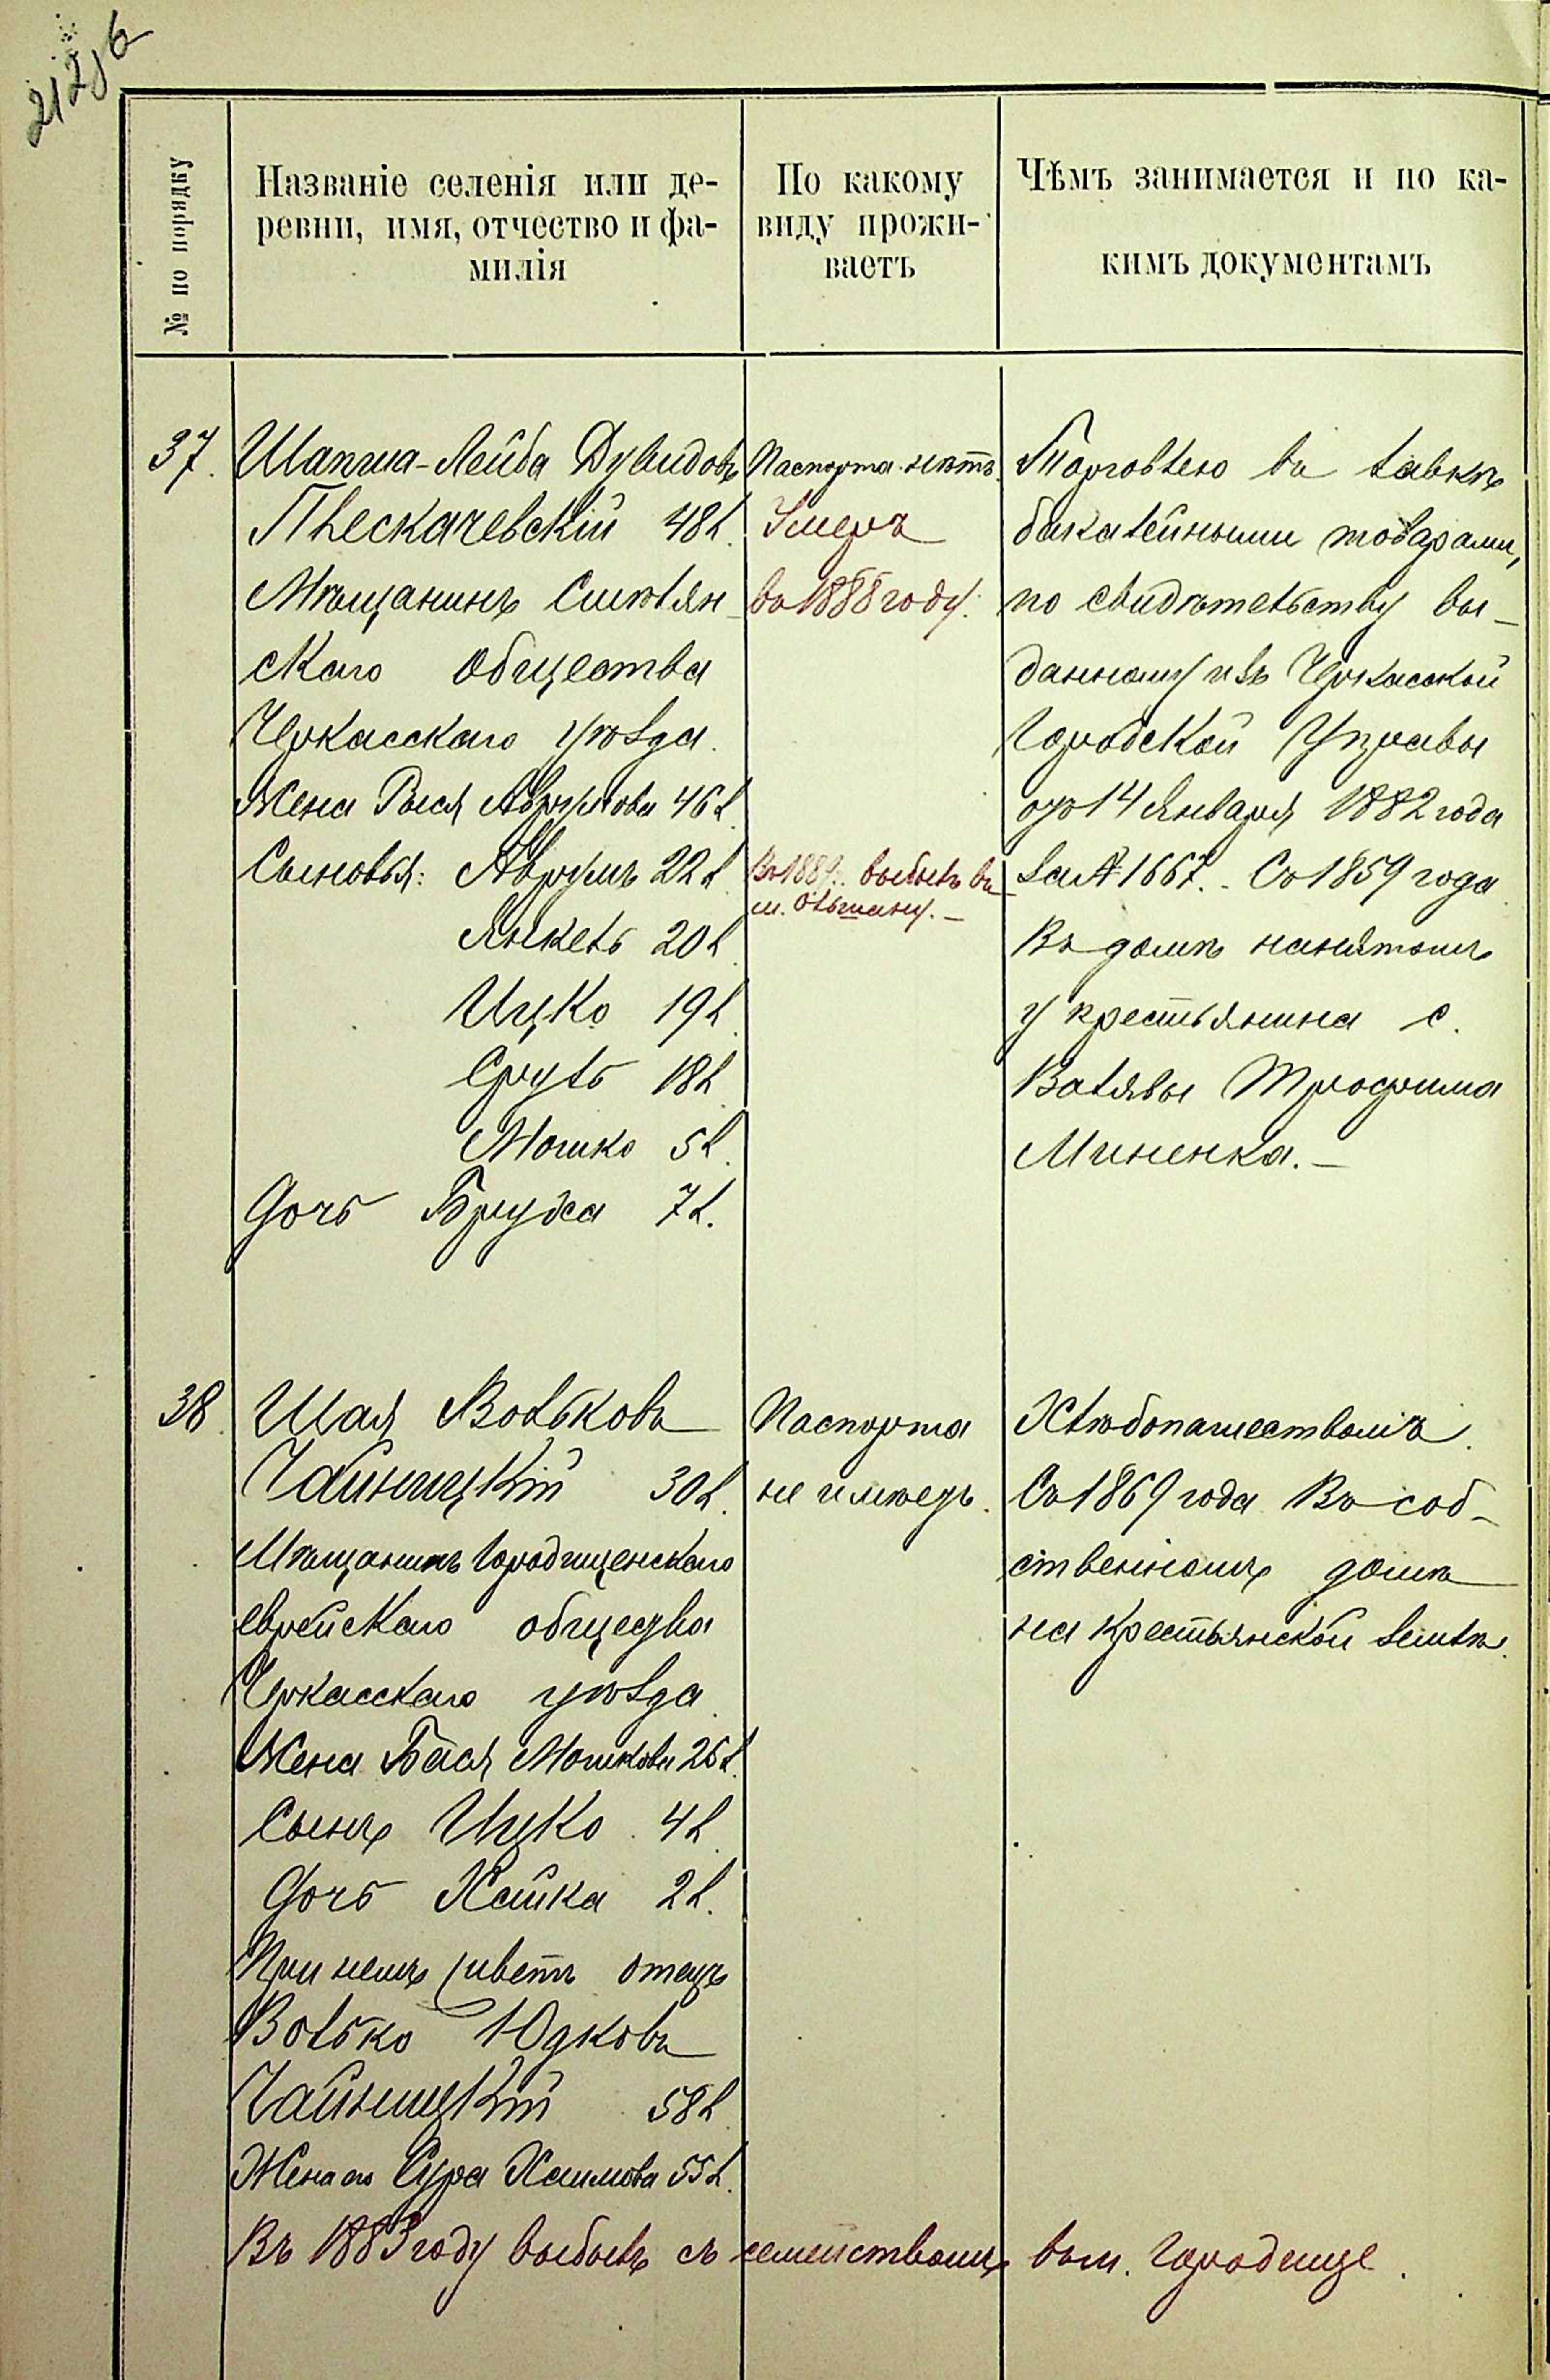 212 об
№ по порядку
Названіе селенія или де-
ревни, имя, отчество и фа-
милія
По какому
виду прожи-
ваетъ
Чѣмъ занимается и по ка-
кимъ документамъ
37.
Шапша-Лейба Дувидовъ
Плескачевскій 48 л.
Мѣщанинъ Смѣлян-
скаго общества
Черкасскаго уѣзда.
Жена Рыся Аврумова 46 л.
Сыновья: Аврумъ 22 л.
Янкель 20 л.
Ицко 19 л.
Сруль 18 л.
Мошко 5 л.
Дочь Бруха 7 л.
Паспорта нѣтъ.
Умеръ
въ 1888 году.
выбылъ въ
м. Ольшану.
Торговлею въ лавкѣ
бакалейными товарами,
по свидѣтельству вы-
данному изъ Черкасской
Городской Управы
отъ 14 Января 1882 года
за № 1667. - Съ 1859 года
Въ домѣ нанятомъ
у крестьянина с.
Валявы Трофима
Миненка. -
38.
Шая Вольковъ
Чайницкій 30 л.
Мѣщанинъ Городищенскаго
еврейскаго общества
Черкасскаго уѣзда.
Жена Бася Мошкова 26 л.
Сынъ Ицко 4 л.
Дочь Хайка 2 л.
При немъ живетъ отецъ
Волько Юдковъ
Чайницкій 58 л.
Жена его Сура Хаимова 55 л.
Паспорта
не имѣетъ.
Хлѣбопашествомъ.
Съ 1869 года Въ соб-
ственномъ домѣ
на крестьянской землѣ.
Въ 1883 году выбылъ съ семействомъ въ м. Городище.